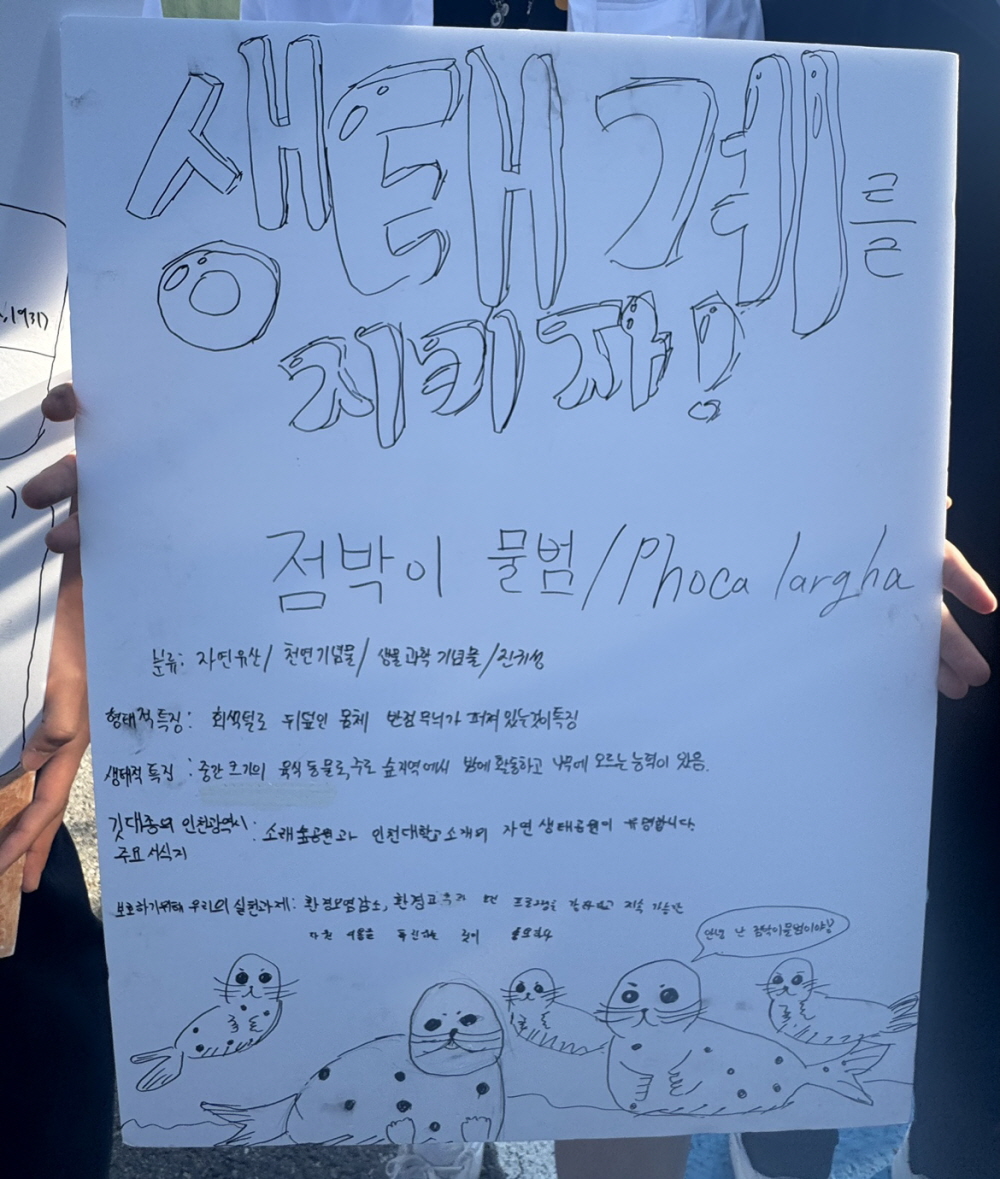 생태계를
지키자!
점박이 물범/Phoca largha
분류: 자연유산/ 천연기념물/ 생물과학 기념물/진귀성
형태적 특징: 회색털로 뒤덮인 몸체 반점무늬가 퍼져 있는것이 특징
생태적 특징: 중간 크기의 육식 동물로, 주로 숲지역에서 밤에 활동하고 나무에 오르는 능력이 있음.
깃대종의 인천광역시: 소래습공원과 인천대학교 소개의 자연 생태공원이 유명합니다.
주요 서식지
보호하기위해 우리의 실천과제: 환경오염감소, 환경교육 및 프로그램을 지속 가능한
자원 이용을 것이 중요하다
안녕 난 점박이물범이야!
, 1931)